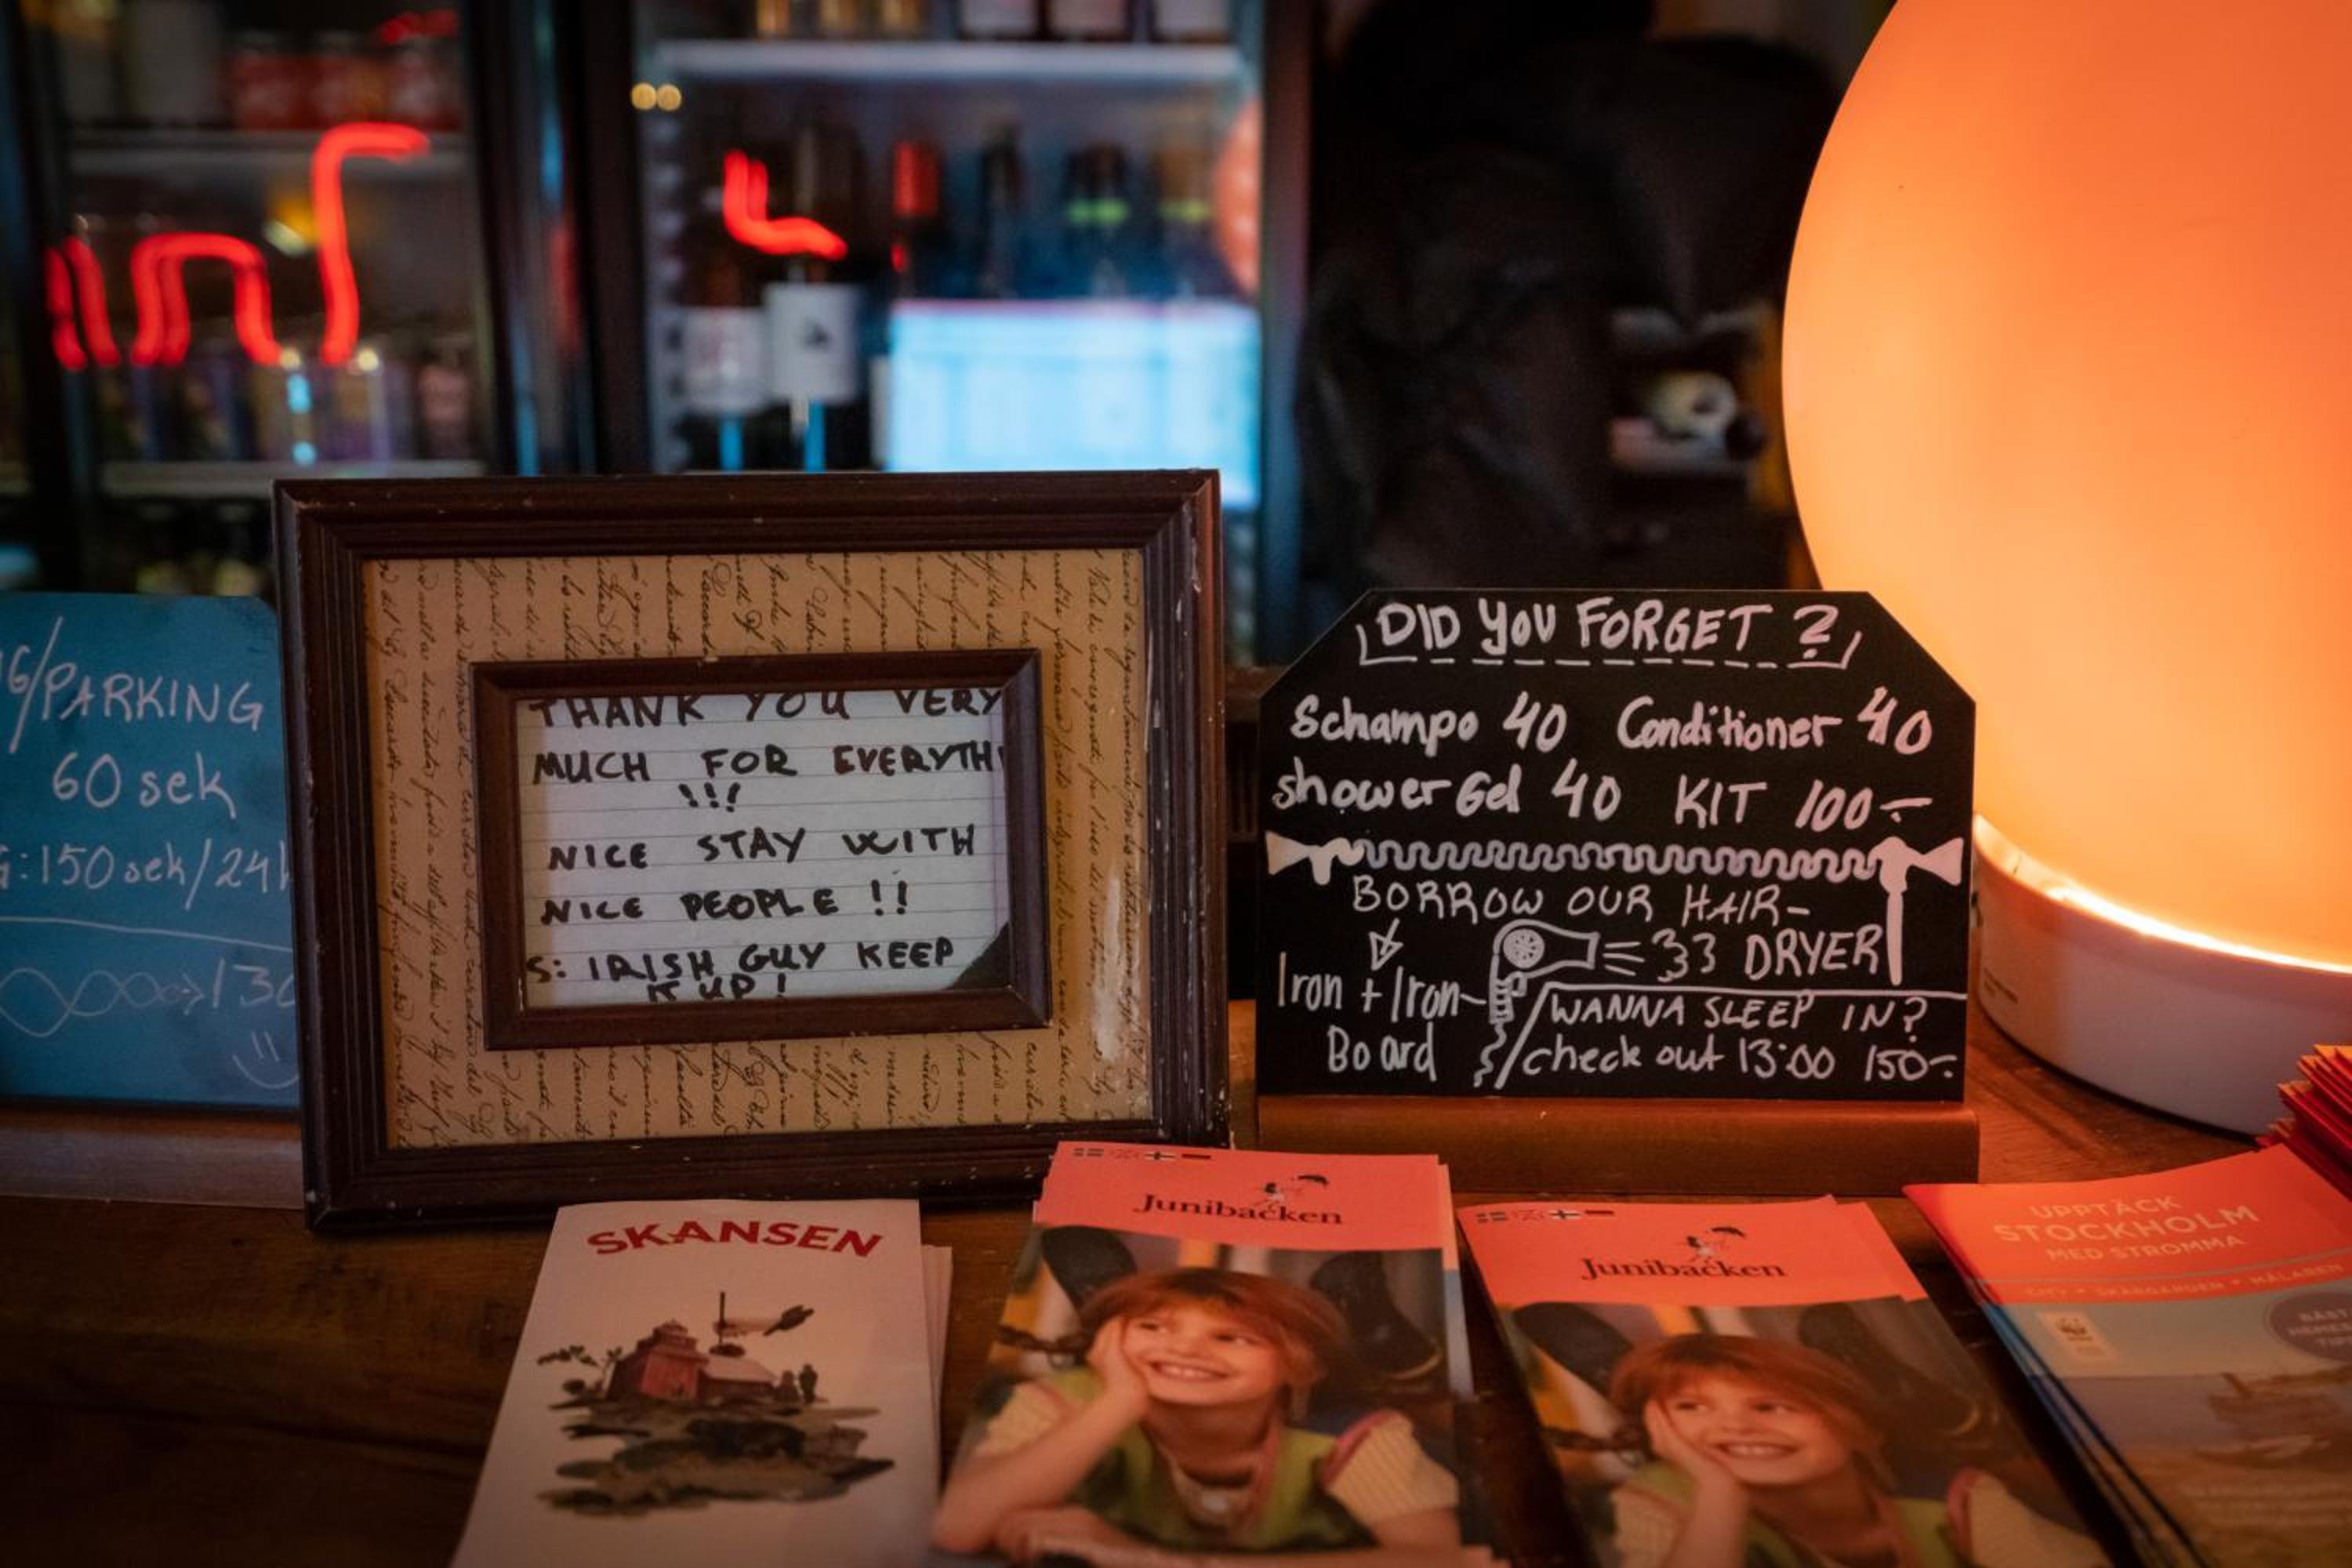 /PARKING
60 sek
:150 sek/24h
THANK YOU VERY
MUCH FOR EVERYTHI
!!!
NICE STAY WITH
NICE PEOPLE !!
S: IRISH GUY KEEP
IT UP!
DID YOU FORGET ?
Schampo 40 Conditioner 40
shower Gel 40 KIT 100:-
BORROW OUR HAIR-
DRYER
Iron + Iron-
Board
WANNA SLEEP IN?
check out 13:00 150:-
SKANSEN
Junibacken
Junibacken
UPPTÄCK
STOCKHOLM
MED STROMMA
CITY • SKÄRGÅRDEN • MÄLAREN